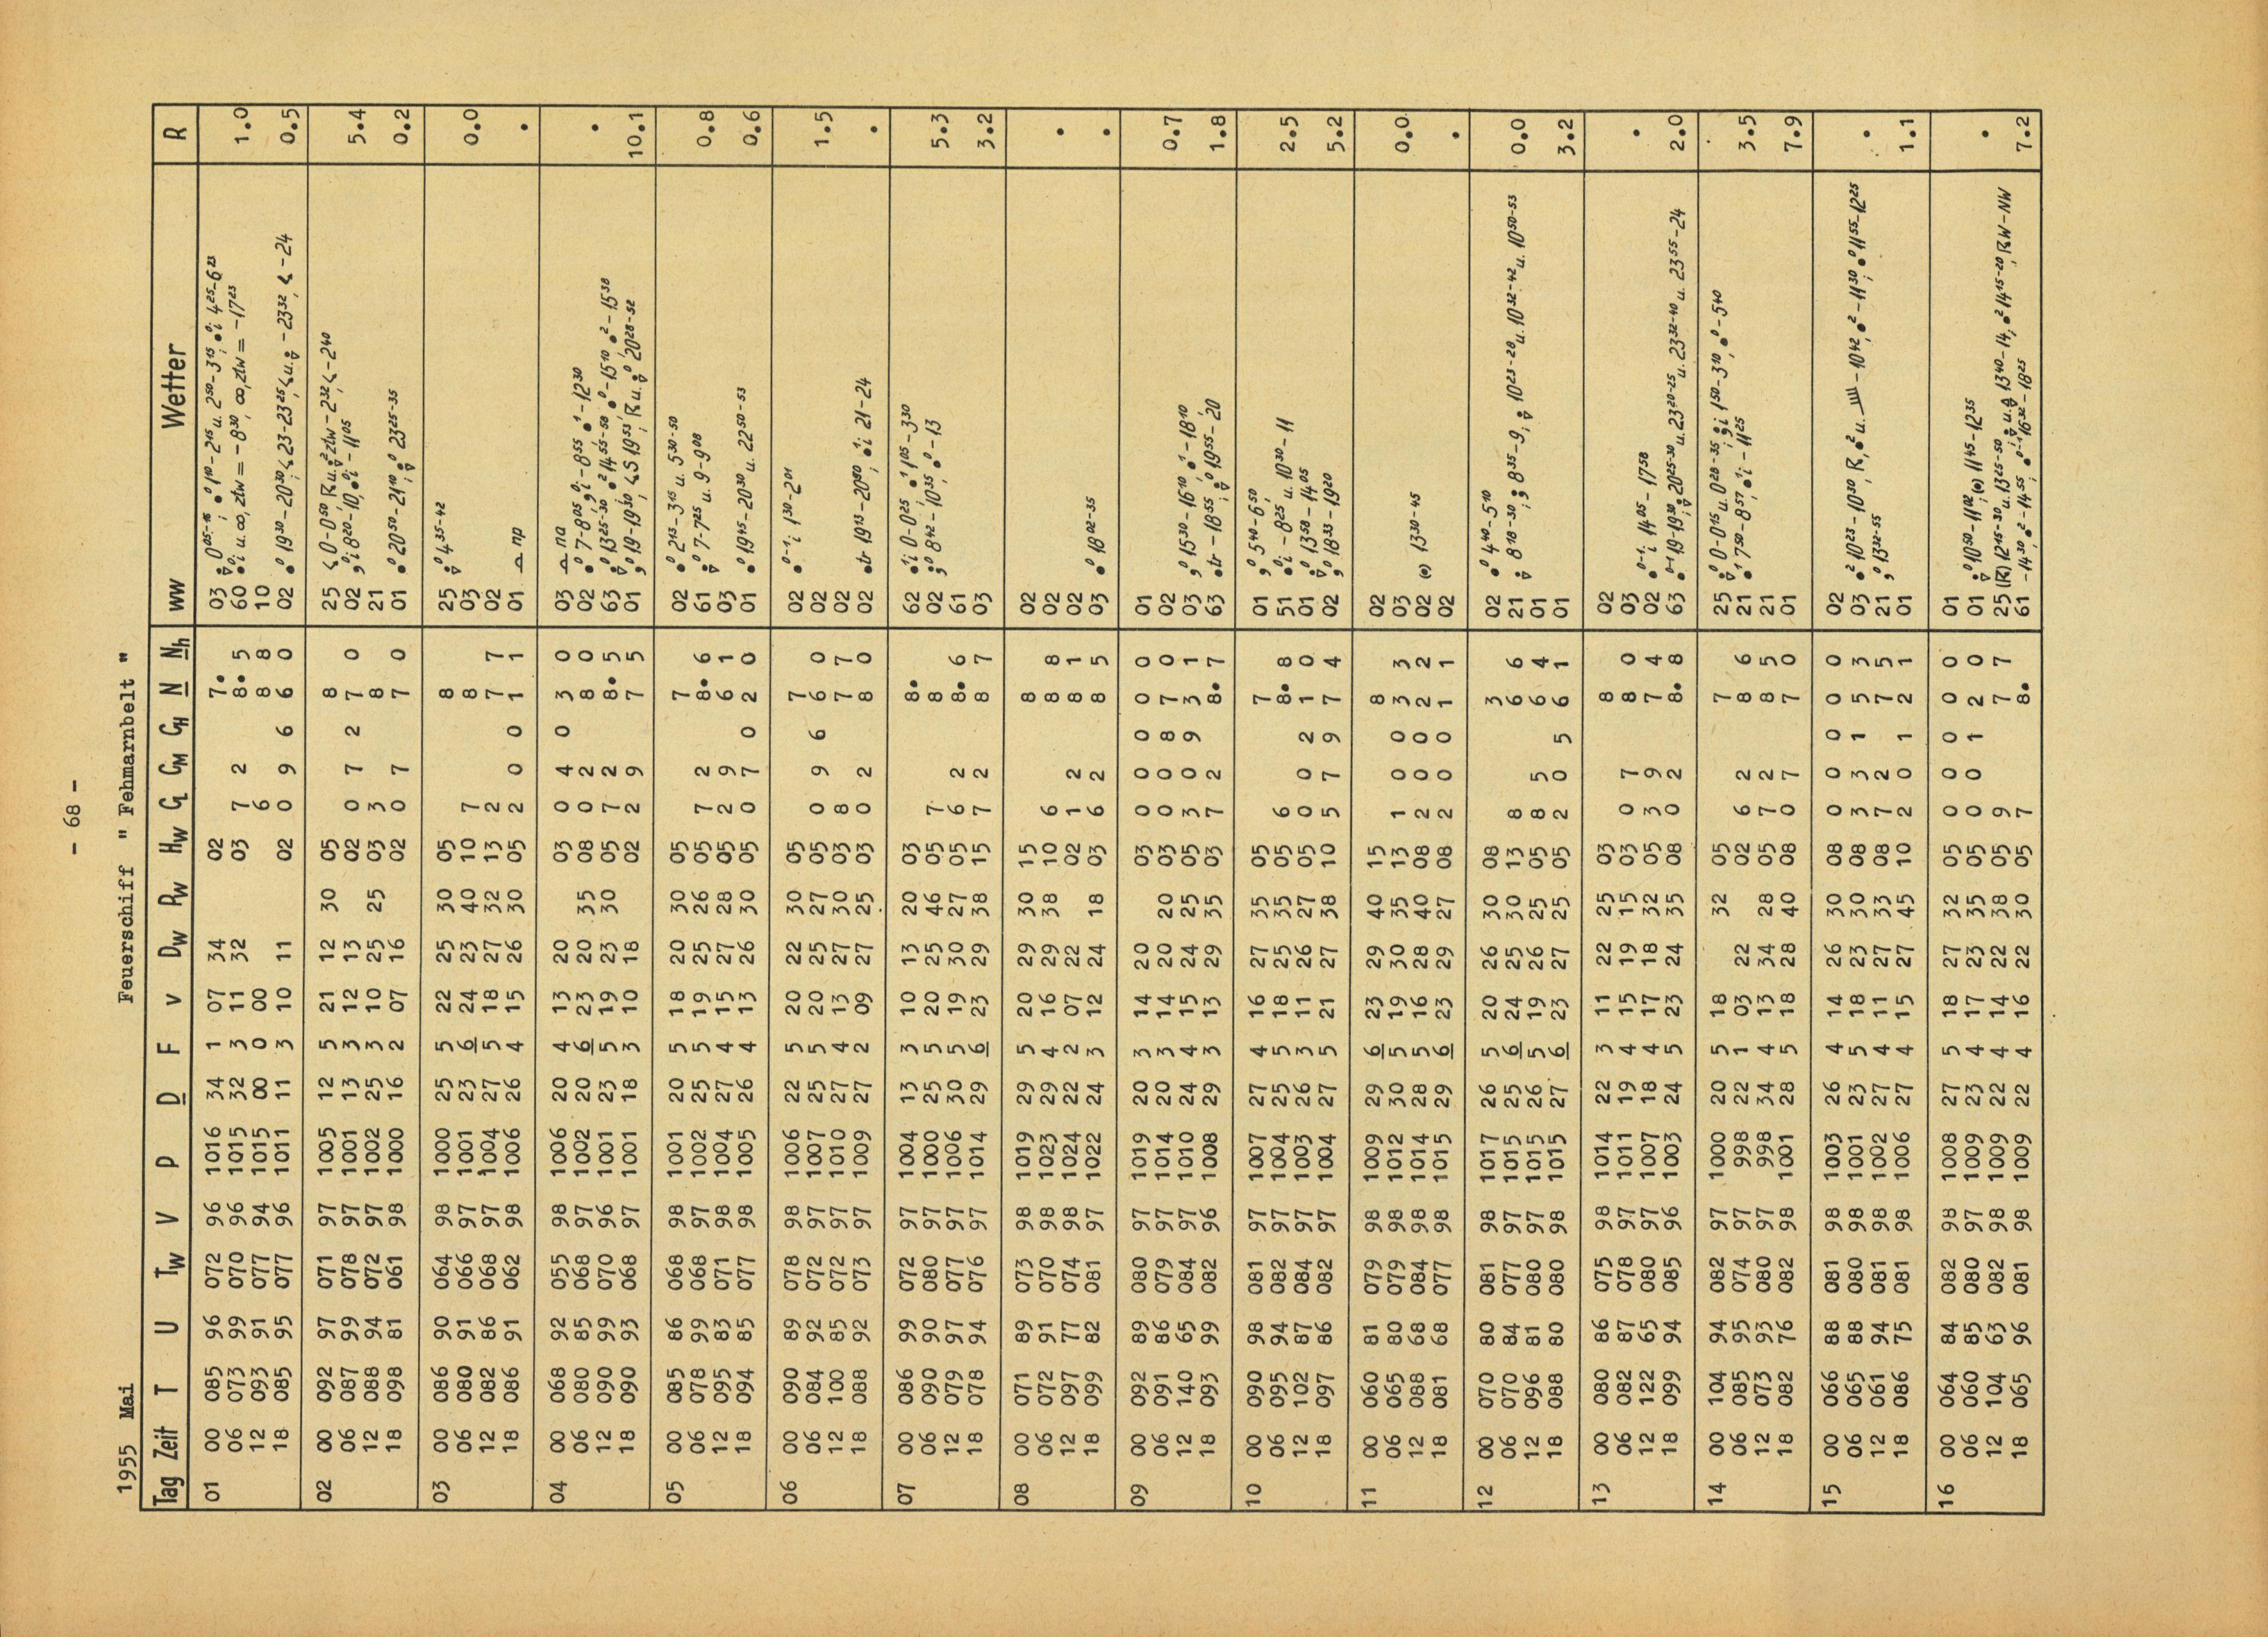 - 68 -
1955 Mai Feuerschiff " Fehmarnbelt "
Tag Zeit T U Tw V P D F v Dw Rw Hw CL CM CH N Nh ww Wetter R
01 00 085 96 072 96 1016 34 1 07 34 02 7• 03 0⁰⁵⁻¹⁵; •⁰ 1¹⁰-2¹⁵ u. 2⁵⁰-3¹⁵; •⁰i 4²⁵-6²³
06 073 99 070 96 1015 32 3 11 32 03 7 2 8• 5 60 •⁰i u. ∞, ztw ≡ -8³⁰, ∞, ztw = -17²³ 1.0
12 093 91 077 94 1015 00 0 00 6 8 8 10
18 085 95 077 96 1011 11 3 10 11 02 0 9 6 6 0 02 •⁰ 19³⁰-20³⁰; 23-23²⁵, u. -23³², -24 0.5
02 00 092 97 071 97 1005 12 5 21 12 30 05 8 25 0-0⁵⁰, u. ² ztw -2³², -2⁴⁰
06 087 99 078 97 1001 13 3 12 13 02 0 7 2 7 0 02 ,i 8²⁰-10, •⁰i -11⁰⁵ 5.4
12 088 94 072 97 1002 25 3 10 25 25 03 3 8 21
18 098 81 061 98 1000 16 2 07 16 02 0 7 7 0 01 •⁰ 20⁵⁰-21¹⁰; ⁰ 23²⁵⁻³⁵ 0.2
03 00 086 90 064 98 1000 25 5 22 25 30 05 8 25 ⁰ 4³⁵⁻⁴²
06 080 91 066 97 1001 23 6 24 23 40 10 7 8 03 0.0
12 082 86 068 97 1004 27 5 18 27 32 13 2 7 7 02
18 086 91 062 98 1006 26 4 15 26 30 05 2 0 0 1 1 01 np •
04 00 068 92 055 98 1006 20 4 13 20 03 0 4 0 3 0 03 na
06 080 85 068 97 1002 20 6 23 20 35 08 0 2 8 0 02 •⁰ 7-8⁰⁵, ,⁰i -8⁵⁵, •¹ -12³⁰ •
12 090 99 070 96 1001 23 5 19 23 30 05 7 2 8• 5 63 ⁰ 13²⁵⁻³⁰, •² 14⁵⁵⁻⁵⁸, •⁰ -15¹⁰, •² -15³⁸
18 090 93 068 97 1001 18 3 10 18 02 2 9 7 5 01 ,⁰ 19-19³⁰, S 19⁵³, u. ⁰ 20²⁸⁻⁵² 10.1
05 00 085 86 068 98 1001 20 5 18 20 30 05 7 02 •⁰ 2¹³-3¹⁵ u. 5³⁰⁻⁵⁰
06 078 99 068 97 1002 25 5 19 25 26 05 7 2 8• 6 61 ⁰ 7-7²⁵ u. 9-9⁰⁸ 0.8
12 095 83 071 98 1004 27 4 15 27 28 05 2 9 6 1 03
18 094 85 077 98 1005 26 4 13 26 30 05 0 7 0 2 0 01 •⁰ 19⁴⁵-20³⁰ u. 22⁵⁰⁻⁵³ 0.6
06 00 090 89 078 98 1006 22 5 20 22 30 05 7 02 •⁰⁻¹i 1³⁰-2⁰¹
06 084 92 072 97 1007 25 5 20 25 27 05 0 9 6 6 0 02 1.5
12 100 85 072 97 1010 27 4 13 27 30 03 8 7 7 02
18 088 92 073 97 1009 27 2 09 27 25 03 0 2 8 0 02 •tr 19¹³-20⁵⁰, •¹i 21-24 •
07 00 086 99 072 97 1004 13 3 10 13 20 03 8• 62 •¹i 0-0²⁵, •¹ 1⁰⁵-3³⁰
06 090 90 080 97 1000 25 5 20 25 46 05 7 8 02 ,⁰ 8⁴²-10³⁵, •⁰ -13 5.3
12 079 97 077 97 1006 30 5 19 30 27 05 6 2 8• 6 61
18 078 94 076 97 1014 29 6 23 29 38 15 7 2 8 7 03 3.2
08 00 071 89 073 98 1019 29 5 20 29 30 15 8 02
06 072 91 070 98 1023 29 4 16 29 38 10 6 8 8 02 •
12 097 77 074 98 1024 22 2 07 22 02 1 2 8 1 02
18 099 82 081 97 1022 24 3 12 24 18 03 6 2 8 5 03 •⁰ 18⁰²⁻³⁵ •
09 00 092 89 080 97 1019 20 3 14 20 03 0 0 0 0 0 01
06 091 86 079 97 1014 20 3 14 20 20 03 0 0 8 7 0 02 0.7
12 140 65 084 97 1010 24 4 15 24 25 05 3 0 9 3 1 03 ,⁰ 15³⁰-16¹⁰, •¹ -18¹⁰
18 093 99 082 96 1008 29 3 13 29 35 03 7 2 8• 7 63 •tr -18⁵⁵, ⁰ 19⁵⁵-20 1.8
10 00 090 98 081 97 1007 27 4 16 27 35 05 7 01 ,⁰ 5⁴⁰-6⁵⁰,
06 095 94 082 97 1004 25 5 18 25 35 05 6 8• 8 51 •⁰i -8²⁵ u. 10³⁰-11 2.5
12 102 87 084 97 1003 26 3 11 26 27 05 0 0 2 1 0 01 ⁰ 13⁵⁸-14⁰⁵
18 097 86 082 97 1004 27 5 21 27 38 10 5 7 9 7 4 02 ,⁰ 18³³-19²⁰ 5.2
11 00 060 81 079 98 1009 29 6 23 29 40 15 8 02
06 065 80 079 98 1012 30 5 19 30 35 13 1 0 0 3 3 03 0.0
12 088 68 084 98 1014 28 5 16 28 40 08 2 0 0 2 2 02 (•) 13³⁰⁻⁴⁵
18 081 68 077 98 1015 29 6 23 29 27 08 2 0 0 1 1 02 •
12 00 070 80 081 98 1017 26 5 20 26 30 08 3 02 •⁰ 4⁴⁰-5¹⁰
06 070 84 077 97 1015 25 6 24 25 30 13 8 6 6 21 8¹⁸⁻³⁰, 8³⁵-9, 10²³⁻²⁸ u. 10³²⁻⁴² u. 10⁵⁰⁻⁵³ 0.0
12 096 81 080 97 1015 26 5 19 26 25 05 8 5 6 4 01
18 088 80 080 98 1015 27 6 23 27 25 05 2 0 5 6 1 01 3.2
13 00 080 86 075 98 1014 22 3 11 22 25 03 8 02
06 082 87 078 97 1011 19 4 15 19 15 03 0 7 8 0 03 •
12 122 65 080 97 1007 18 4 17 18 32 05 3 9 7 4 02 •⁰⁻¹i 14⁰⁵-17⁵⁸
18 099 94 085 96 1003 24 5 23 24 35 08 0 2 8• 8 63 •⁰⁻¹ 19-19³⁰, 20²⁵⁻³⁰ u. 23²⁰⁻²⁵ u. 23³²⁻⁴⁰ u. 23⁵⁵-24 2.0
14 00 104 94 082 97 1000 20 5 18 32 05 7 25 ⁰ 0-0¹⁵ u. 0²⁸⁻³⁵, 1⁵⁰-3¹⁰, •⁰ -5⁴⁰
06 085 95 074 97 998 22 1 03 22 02 6 2 8 6 21 •¹ 7⁵⁰-8⁵⁷, •⁰i -11²⁵ 3.5
12 073 93 080 97 998 34 4 13 34 28 05 7 2 8 5 21
18 082 76 082 98 1001 28 5 18 28 40 08 0 7 7 0 01 7.9
15 00 066 88 081 98 1003 26 4 14 26 30 08 0 0 0 0 0 02
06 065 88 080 98 1001 23 5 18 23 30 08 3 3 1 5 3 03 •² 10²³-10³⁰, •² u. -10⁴², •² -11³⁰, •⁰ 11⁵⁵-12²⁵ •
12 061 94 081 98 1002 27 4 11 27 33 08 7 2 7 5 21 ,⁰ 13³²⁻⁵⁵
18 086 75 081 98 1006 27 4 15 27 45 10 2 0 1 2 1 01 1.1
16 00 064 84 082 98 1008 27 5 18 27 32 05 0 0 0 0 0 01
06 060 85 080 97 1009 23 4 17 23 35 05 0 0 1 2 0 01 ⁰ 10⁵⁰-11⁰², (•) 11⁴⁵-12³⁵ •
12 104 63 082 98 1009 22 4 14 22 38 05 9 7 7 25 12¹⁵⁻³⁰ u. 13²⁵⁻⁵⁰, u. 13⁴⁰-14, •² 14¹⁵⁻²⁰, W-NW
18 065 96 081 98 1009 22 4 16 22 30 05 7 8• 61 -14³⁰, •² -14⁵⁵, •⁰⁻¹ 16³²-18²⁵ 7.2